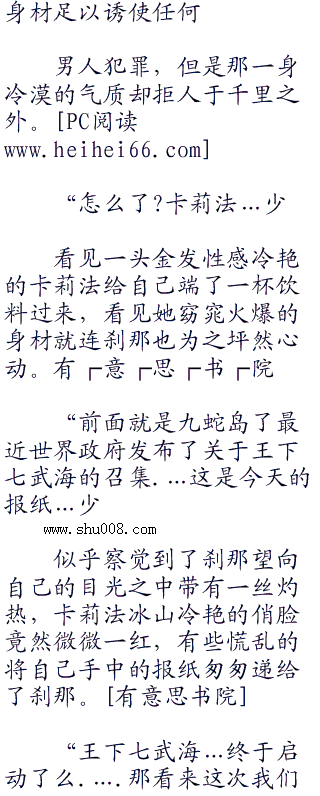 身材足以诱使任何
男人犯罪，但是那一身
冷漠的气质却拒人于千里之
外。[PC阅读
www.heihei66.com]
“怎么了?卡莉法…少
看见一头金发性感冷艳
的卡莉法给自己端了一杯饮
料过来，看见她窈窕火爆的
身材就连刹那也为之坪然心
动。有┏意┏思┏书┏院
“前面就是九蛇岛了最
近世界政府发布了关于王下
七武海的召集.…这是今天的
报纸…少
www.shu008.com
似乎察觉到了刹那望向
自己的目光之中带有一丝灼
热，卡莉法冰山冷艳的俏脸
竟然微微一红，有些慌乱的
将自己手中的报纸匆匆递给
了刹那。[有意思书院]
“王下七武海…终于启
动了么.….那看来这次我们